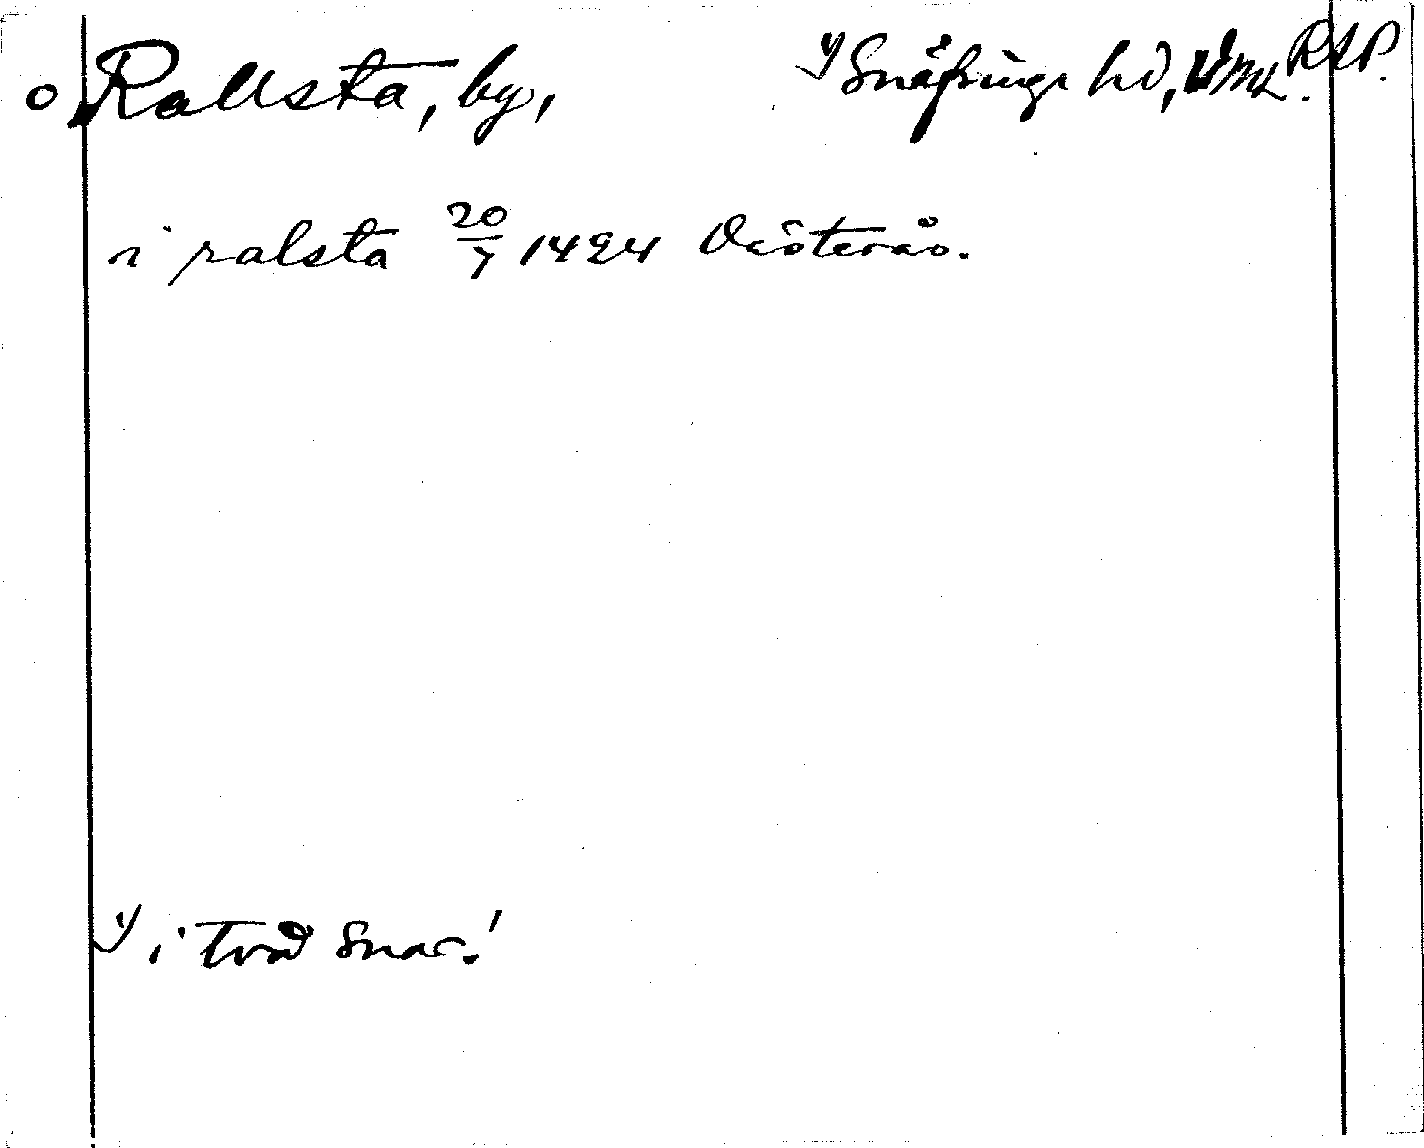 o Rallsta, by, 1) Snäfringe hd, Vml. RAP.
i ralsta 20/7 1424 Västerås.
1) i Tvd Snae.!